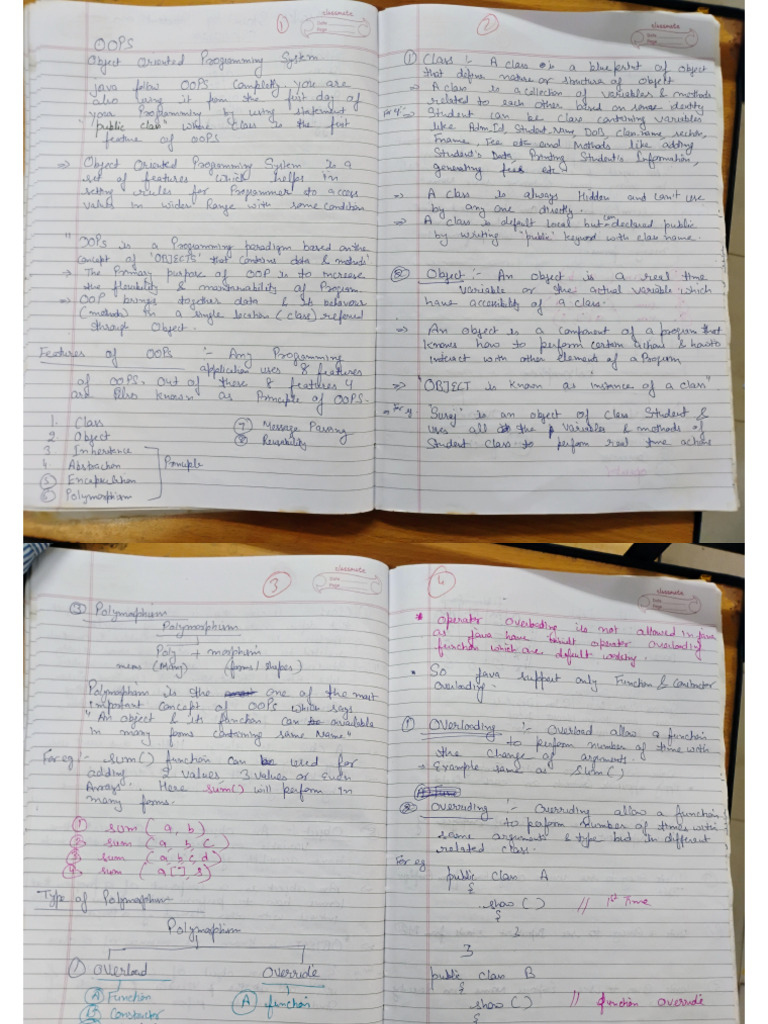 1
classmate
Date
Page
OOPS
Object Oriented Programming System.
java follow OOPS Completly, you are
also using it from the first day of
your Programming by using statement
"public class" where class is the first
feature of OOPS
⇒ Object Oriented Programming System is a
set of features which helps in
setting rules for Programmer to access
values in wider Range with some condition
"OOPs is a Programming paradigm based on the
concept of 'OBJECTS' that contains data & methods"
⇒ The Primary purpose of OOP is to increase
the flexibility & maintainability of Program.
⇒ OOP brings together data & its behaviour
(methods) in a single location (class) referred
through Object.
Features of OOPs :- Any Programming
application uses 8 features
of OOPS. Out of these 8 features 4
are Also known as Principle of OOPS.
1. Class
2. Object
3. Inheritance
4. Abstraction
5 Encapsulation
6 Polymorphism
Principle
7 Message Passing
8 Reusability
2
classmate
Date
Page
1 Class :- A class is a blueprint of object
that define nature or structure of object
⇒ A class is a collection of variables & methods
related to each other based on some identity
For eg ⇒ Student can be class containing variables
like Adm.Id, Student Name, DOB, class name, section,
Fname, Fee etc and Methods like adding
Student's Data, Printing Student's Information,
generating fees etc
⇒ A class is always Hidden and can't use
by any one directly.
⇒ A class is default local but can declared public
by writing "public" keyword with class name.
2 Object :- An object is a real time
variable or the actual variable which
have accessibility of a class.
⇒ An object is a component of a program that
knows how to perform certain actions & how to
interact with other elements of a Program
⇒ "OBJECT is known as instance of a class"
⇒ For eg "Suraj" is an object of class Student &
uses all the variables & methods of
Student class to perform real time
3
classmate
Date
Page
3 Polymorphism
Polymorphism
Poly + morphism
means (Many) (forms/shapes)
Polymorphism is the one of the most
important concept of OOPs which says
"An object & its function can available
in many forms containing same name"
For eg :- sum() function can be used for
adding 2 values, 3 values or even
Arrays. Here sum() will perform in
many forms.
1 sum (a, b)
2 sum (a, b, c)
3 sum (a, b, c, d)
4 sum (a[], s)
Type of Polymorphism
Polymorphism
1 overload
override
A Function
A function
Constructor
4
classmate
Date
Page
* operator overloading is not allowed in java
as java have result operator overloading
function which are default working.
• So java support only Function & Constructor
overloading.
1 overloading :- Overload allow a function
to perform number of time with
the change of arguments.
⇒ Example same as Sum()
2 overriding :- Overriding allow a function
to perform number of times with
same arguments & type but in different
related class.
For eg
public class A
{
show () // 1st Time
{
}
}
public class B
{
show () // function override
{